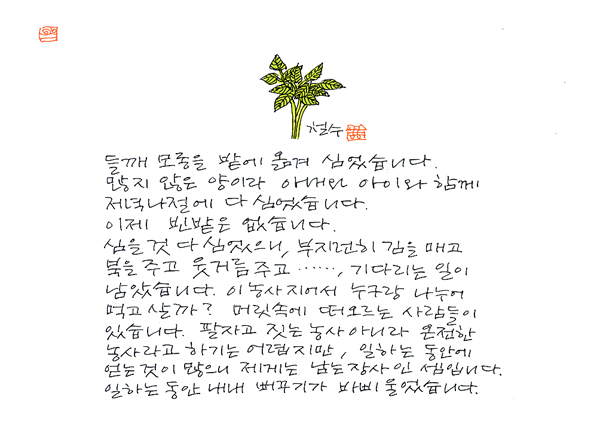 철수
들깨 모종을 밭에 옮겨 심었습니다.
많지 않은 양이라 아내와 아이와 함께
저녁나절에 다 심었습니다.
이제 빈밭은 없습니다.
심을것 다 심었으니, 부지런히 김을 매고
북을 주고 웃거름주고……, 기다리는 일이
남았습니다. 이 농사지어서 누구랑 나누어
먹고 살까? 머릿속에 떠오르는 사람들이
있습니다. 팔자고 짓는 농사 아니라 온전한
농사라고 하기는 어렵지만, 일하는 동안에
얻는것이 많으니 제게는 남는장사인 셈입니다.
일하는 동안 내내 뻐꾸기가 바삐 울었습니다.